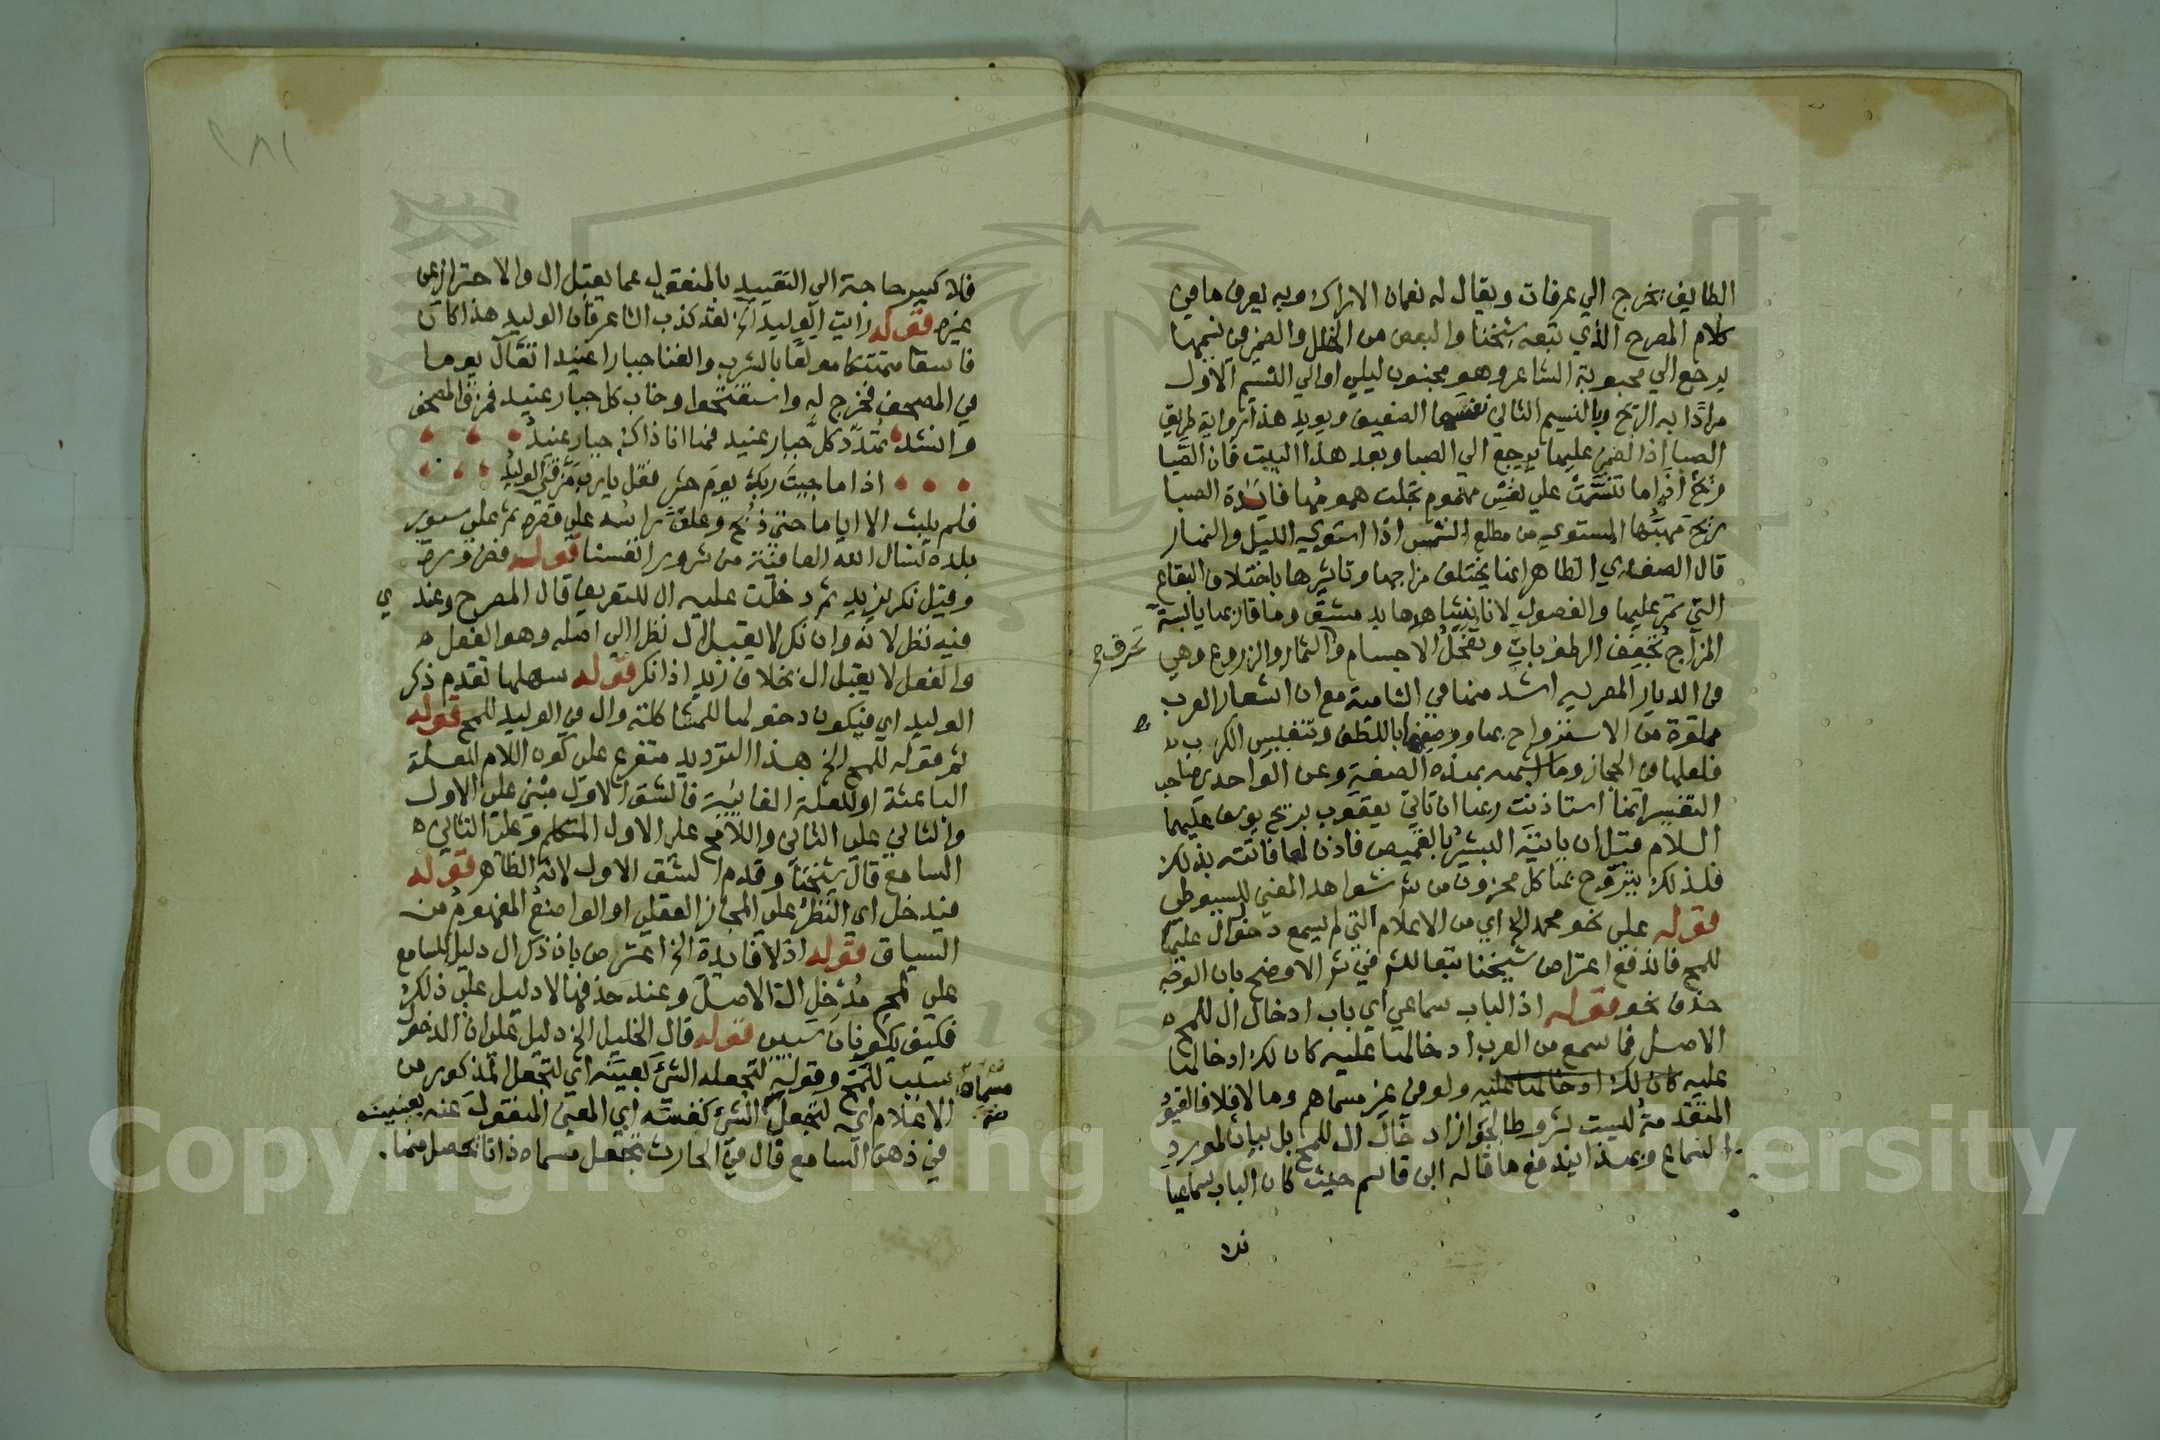 الطايف يخرج الي عرفات ويقال له نعمان الاراك وبه يعرف ما في
كلام المصرح الذي تبعه شيخنا والبعض من الخلل والضمير في نسيمها
يرجع الي محبوبة الشاعر وهو مجنون ليلي او الي النسيم الاول
مرادًا به الريح وبالنسيم الثاني نفسها الضعيف ويويد هذا رواية طريق
الصبا اذ الضمير عليها يرجع الي الصبا وبعد هذا البيت فان الصَّبا
ريحٌ اذا ما تنسَّمَتْ علي نفس مهموم تجلت همومها فايدة الصبا
ريح مهبّها المستوي من مطلع الشمس اذا استوي الليل والنهار
قال الصفدي الظاهر انما يختلف مزاجها وتاثيرها باختلاف البقاع
التي تمر عليها والفصول لانا نشاهدها بدمشق وما قاربها يابسة
المزاج تجفف الرطوبات وتقحل الاجسام والثمار والزروع وهي
تحرق ح
في الديار المصريه اشد منها في الشامية مع ان اشعار العرب
مملوة من الاسترواح بها ووصفها باللطف وتنفيس الكرب
فلعلها في الحجاز وما اشبهه بهذه الصفة وعن الواحدي صاحب
التفسير انها استاذنت ربها ان تاتي يعقوب بريح يوسف عليهما
السلام قبل ان ياتيه البشير بالقميص فاذن لها فاتته بذلك
فلذلك يتروّح بها كل محزون من شر شواهد المغني للسيوطي
قوله علي نحو محمد الخ اي من الاعلام التي لم يسمع دخول ال عليها
للمح فاندفع اعتراض شيخنا تبعا للشر في شر الاوضح بان الوجه
حذف نحو قوله اذ الباب سماعي اي باب ادخال ال للمح
الاصل فما سمع من العرب ادخالها عليه كان لك ادخالها
عليه كان لك ادخالها عليه ولو في غير مسماهم وما لا فلا فالقيود
المتقدمة ليست شروطا لجواز ادخال ال للمح بل بيان لمورد
السماع وبهذا يندفع ما قاله ابن قاسم حيث كان الباب سماعيا
فلا
فلا كبير حاجة الي التقييد بالمنقول عما يقبل ال والاحتراز عن
غيره قوله رايت الوليد الخ لقد كذب الشاعر فان الوليد هذا كان
فاسقا متهتكا مولعًا بالشرب والغنا جبارا عنيدا تفآل يوما
في المصحف فخرج له واستفتحوا وخاب كل جبار عنيد فمزق المصحف
وانشد تهدّد كل جبار عنيد فها انا ذاك جبار عنيدُ
اذا ما جيت ربك يوم حشر فقل يارب مزّقني الوليدُ
فلم يلبث الا اياما حتي ذُبح وعُلّق راسه علي قصره ثم علي سور
بلده نسال الله العافية من شرور انفسنا قوله
وقيل نكر يزيد ثم دخلت عليه ال للتعريف قال المصرح وعندي
فيه نظر لانه وان نكر لا يقبل ال نظرا الي اصله وهو الفعل
والفعل لا يقبل ال بخلاف زيد اذا نكر قوله سهلها تقدم ذكر
الوليد اي فيكون دخولها للمشاكلة وال في الوليد للمح قوله
ثم قوله للمح الخ هذا الترديد متفرع علي كون اللام للعلة
الباعثة او للعلة الغائية فالشق الاول مبني علي الاول
والثاني علي الثاني واللامح علي الاول المتكلم وعلي الثاني
السامع قال شيخنا وقدم الشق الاول لانه الظاهر قوله
فيدخل اي النظر علي المجاز العقلي او الواضع المفهوم من
السياق قوله اذ لا فايدة الخ اعترض بان ذكر ال دليل للسامع
علي لمح مُدخل ال الاصل وعند حذفها لا دليل علي ذلك
فكيف يكونان سيين قوله قال الخليل الخ دليل علي ان الدخول
سبب للمح وقوله لتجعله الشي بعينه اي لتجعل المذكور من
مسماه
الاعلام اي لتجعل الشي كنفسه اي المعني المنقول عنه بعينيه
في ذهن السامع قال في الحارث تجعل مسماه ذاتا تحصل منها.
١٨١
Copyright © King Saud University
1957